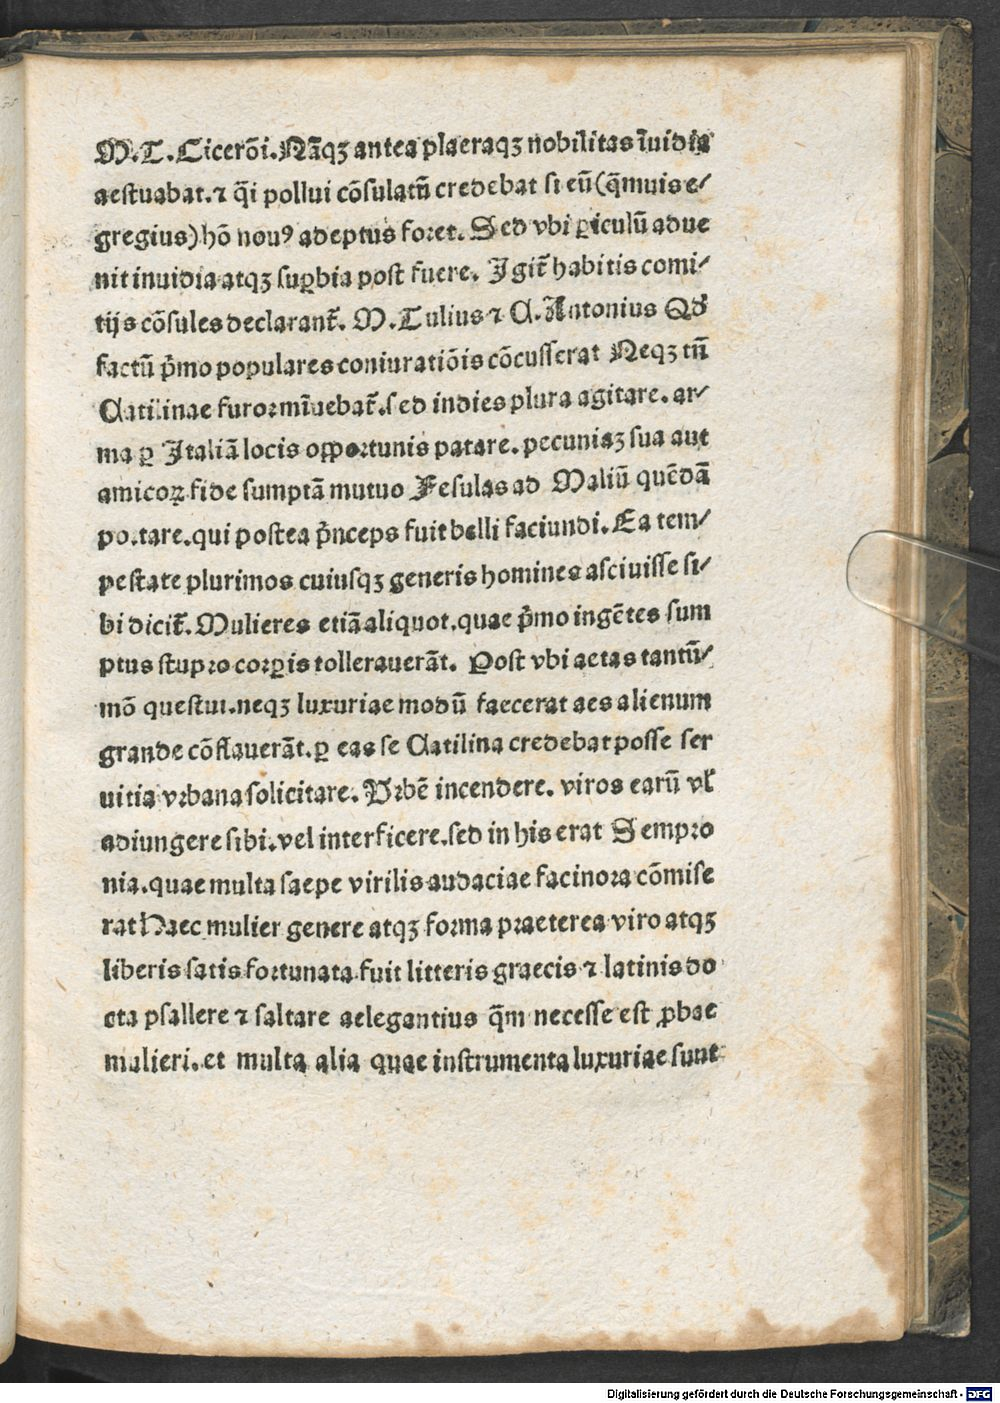 M.T.Cicerōi.Nāqꝫ antea plaeraqꝫ nobilitas īuidia
aestuabat.⁊ q̄i pollui cōsulatū credebat si eū(q̄muis e/
gregius)hō nouꝰ adeptus foret. Sed vbi ꝑiculū adue
nit inuidia atqꝫ suꝑbia post fuere. Igit̄ habitis comi/
tijs cōsules declarant̄. M.Tulius ⁊ C.Antonius Qd̄
factū p̄mo populares coniuratiōis cōcusserat Neqꝫ tn̄
Catilinae furor mīuebat̄.sed indies plura agitare.ar/
ma ꝑ Italiā locis opportunis patare.pecuniaꝫ sua aut
amicoꝝ fide sumptā mutuo Fesulas ad Maliū quēdā
portare.qui postea p̄nceps fuit belli faciundi.Ea tem/
pestate plurimos cuiusqꝫ generis homines asciuisse si/
bi dicit̄.Mulieres etiā aliquot.quae p̄mo ingētes sum
ptus stupro corꝑis tollerauerāt. Post vbi aetas tantū/
mō questui.neqꝫ luxuriae modū faecerat aes alienum
grande cōflauerāt.ꝑ eas se Catilina credebat posse ser
uitia vrbana solicitare.Vrbē incendere. viros earū vl̄
adiungere sibi.vel interficere.sed in his erat Sempro
nia.quae multa saepe virilis audaciae facinora cōmise
rat Haec mulier genere atqꝫ forma praeterea viro atqꝫ
liberis satis fortunata fuit litteris graecis ⁊ latinis do
cta psallere ⁊ saltare aelegantius q̄m necesse est ꝓbae
mulieri.et multa alia quae instrumenta luxuriae sunt
Digitalisierung gefördert durch die Deutsche Forschungsgemeinschaft - DFG